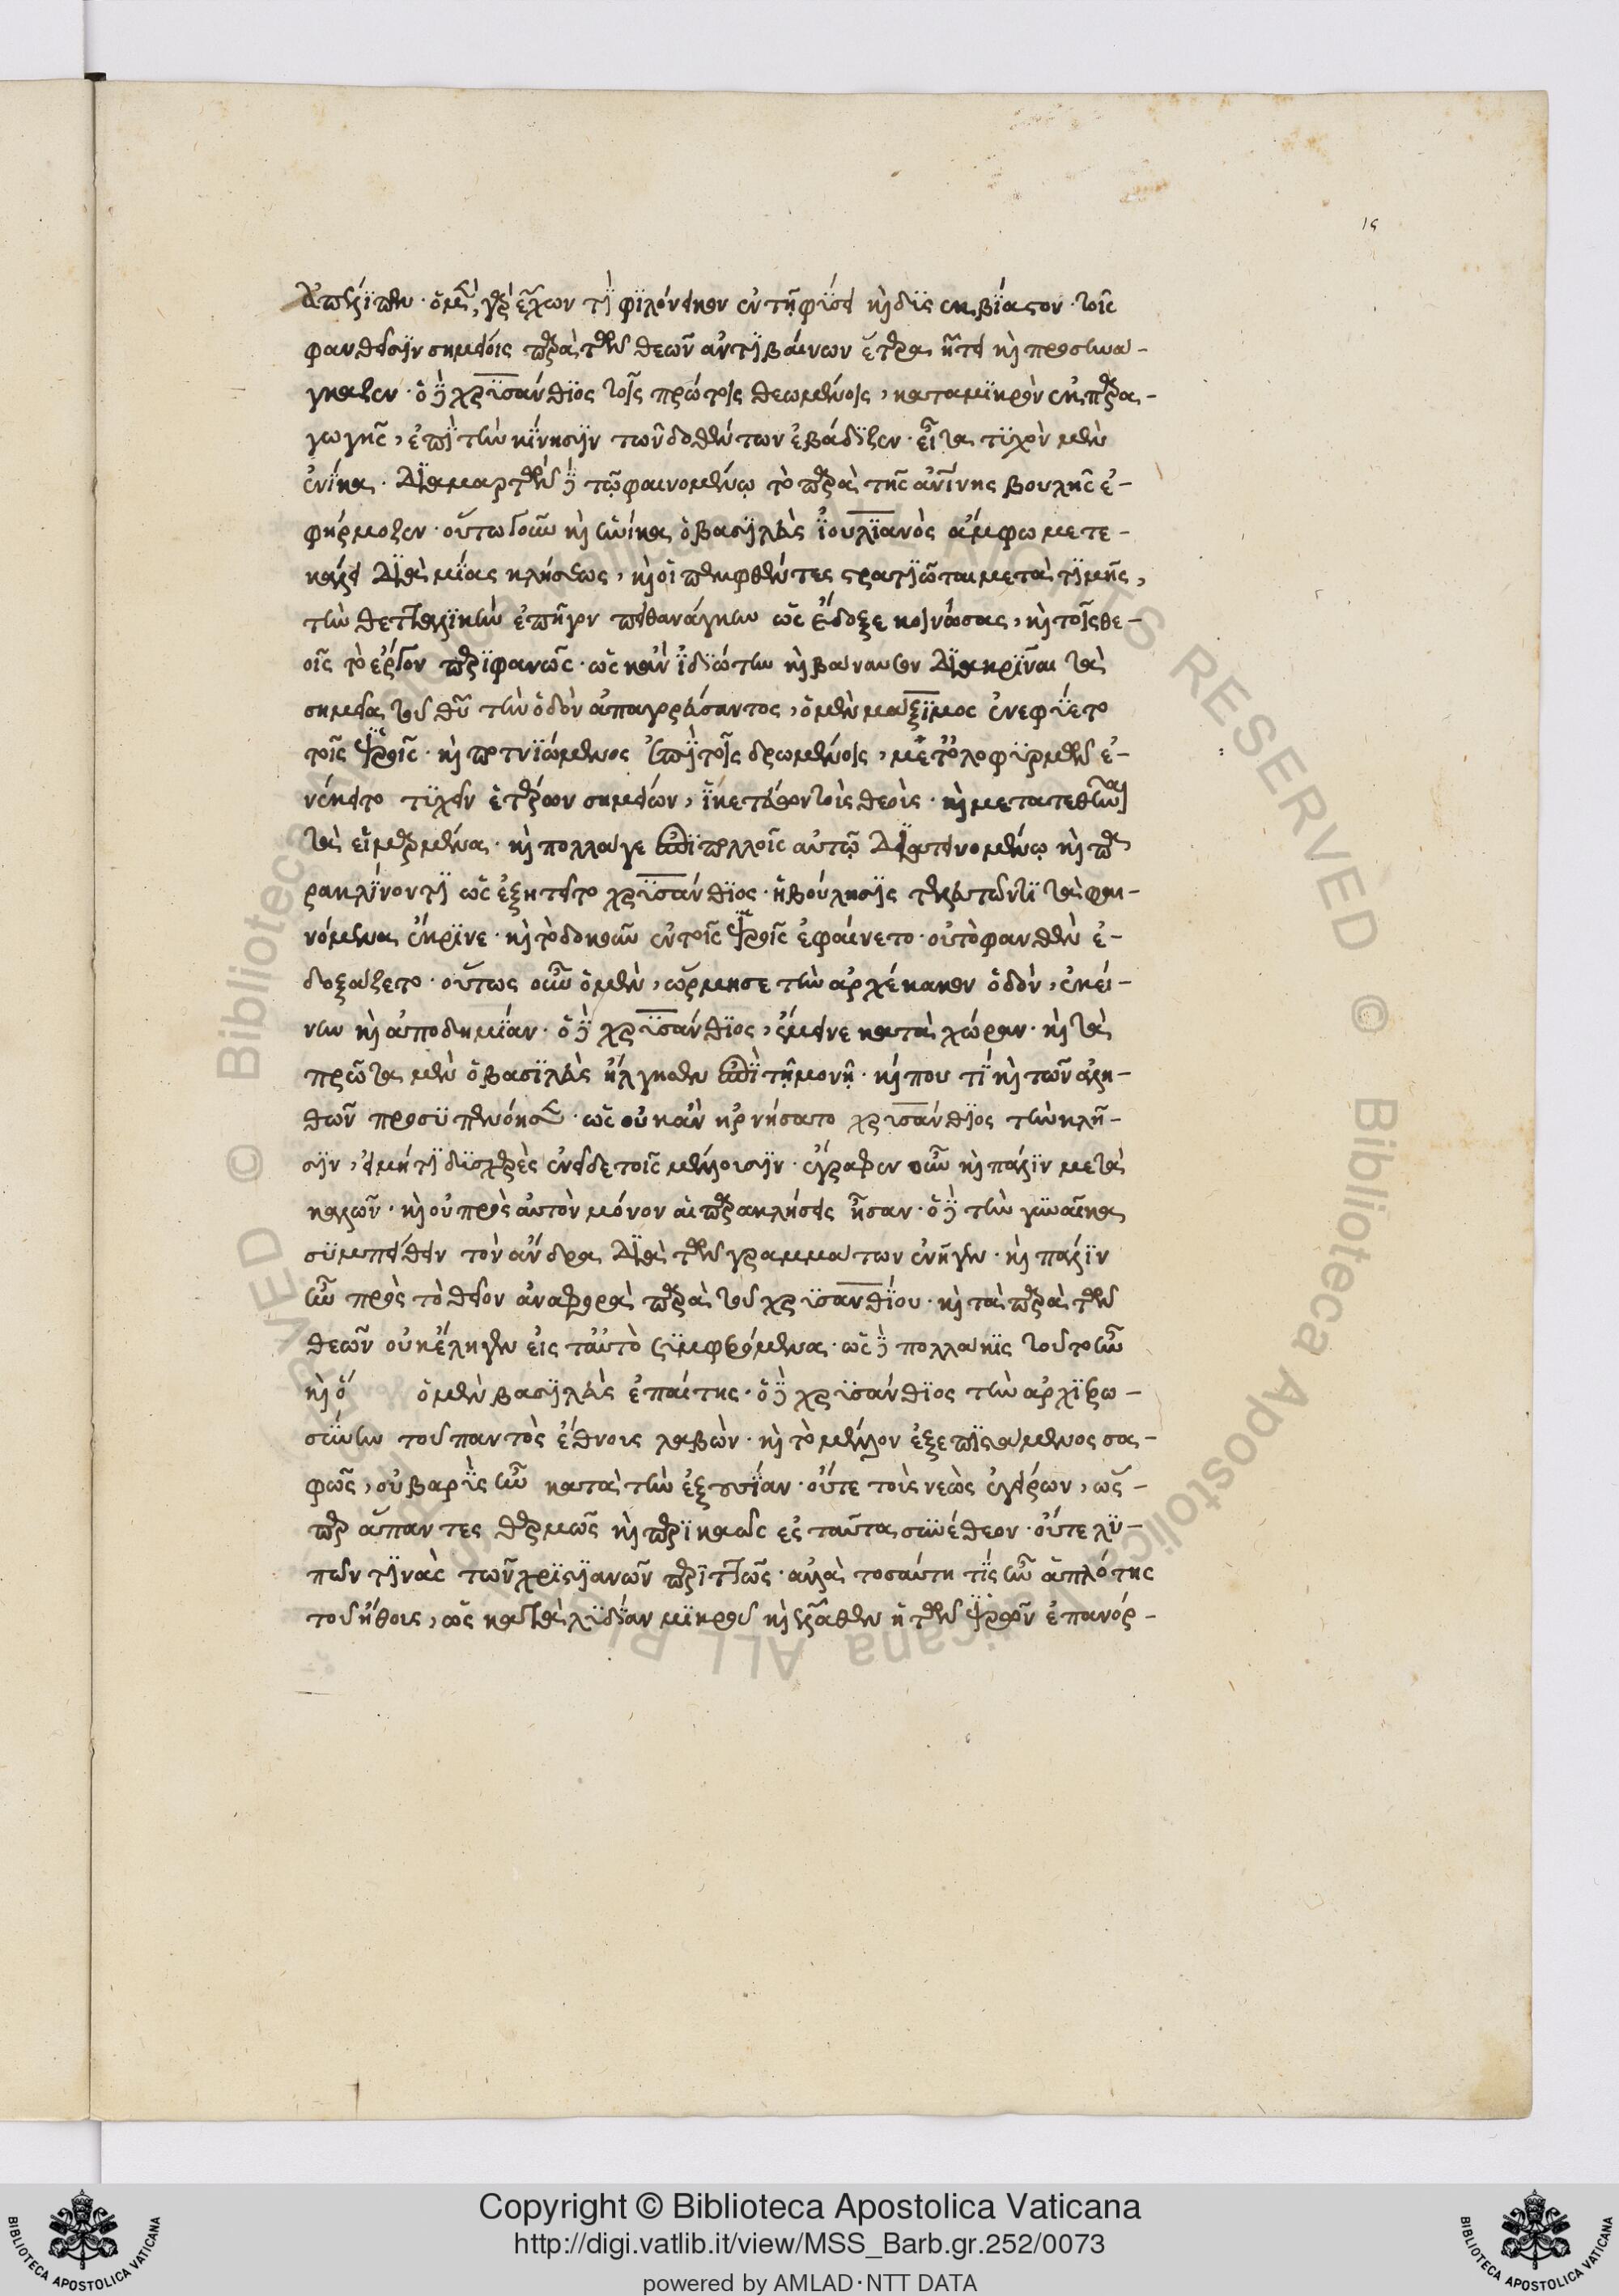 ις
ἀπέλιπεν· ὁ μὲν γὰρ ἔχων τϊ φϊλόνεικον ἐν τῇ φύσει κὴ δυσεκβίαστον· τοῖς
φανθεῖσιν σημείοις παρὰ τῶν θεῶν ἀντϊβαίνων ἕτερα ᾔτει κὴ προσηνα-
γκαζεν· ὁ δὲ χρϊσάνθϊος τοῖς πρώτοις θεωμένοις, καταμϊκρὸν ἐκ παρα-
γωγῆς, ἐπὶ τὴν κίνησϊν τῶν δοθέντων ἐβάδϊζεν· εἶτα τϋχὸν μὲν
ἐνίκα· διαμαρτὼν δὲ τῷ φαινομένῳ τὸ παρὰ τῆς ἀνΐνης βουλῆς ἐ-
φήρμοζεν· οὕτω γοῦν κὴ ἡνίκα ὁ βασϊλεὺς ϊουλϊανὸς ἄμφω μετε-
κάλει διὰ μϊᾶς κλήσεως, κὴ οἱ πεμφθέντες στρατϊῶται μετὰ τϊμῆς,
τὴν θετταλϊκὴν ἐπῆγον πειθανάγκην ὡς ἔδοξε κοινώσας, κὴ τοῖς θε-
οῖς τὸ ἔργον περϊφανῶς· ὡς κἂν ϊδϊώτην κὴ βάναυσον διακρῖναι τὰ
σημεῖα τοῦ θεοῦ τὴν ὁδὸν ἀπαγορεύσαντος, ὁ μὲν μάξϊμος ἐνεφύετο
τοῖς ϊεροῖς· κὴ ποτνϊώμενος ἐπὶ τοῖς δρωμένοις, μετ ὀλοφϋρμῶν ἐ-
νέκειτο τϋχεῖν ἑτέρων σημείων, ϊκετεύων τοὺς θεοὺς· κὴ μετατεθῆναι
τὰ εἱμαρμένα· κὴ πολλά γε ἐπὶ πολλοῖς αὐτῷ διατεινομένῳ κὴ πα
ρακλίνοντϊ ὡς ἐξηγεῖτο χρϊσάνθϊος· ἡ βούλησϊς τελευτῶντϊ τὰ φαι-
νόμενα ἔκρϊνε· κὴ τὸ δοκοῦν ἐν τοῖς ϊεροῖς ἐφαίνετο· οὐ τὸ φανθὲν ἐ-
δοξάζετο· οὕτως οὖν ὁ μὲν, ὥρμησε τὴν ἀρχέκακον ὁδόν, ἐκεί-
νην κὴ ἀποδημϊαν· ὁ δὲ χρϊσάνθϊος, ἔμεινε κατὰ χώραν· κὴ τὰ
πρῶτα μὲν ὁ βασϊλεὺς ἤλγησεν ἐπὶ τῇ μονῇ· κή που τϊ κὴ τῶν ἀλη-
θῶν προσϋπενόησεν· ὡς οὐκ ἂν ἠρνήσατο χρϊσάνθϊος τὴν κλῆ-
σϊν, εἰ μή τϊ δϋσχερὲς ἐνεῖδε τοῖς μέλλουσϊν· ἔγραφεν οὖν κὴ πάλϊν μετὰ
καλῶν· κὴ οὐ πρὸς αὐτὸν μόνον αἱ παρακλήσεις ἦσαν· ὁ δὲ τὴν γυναῖκα
σϋμπείθειν τὸν ἄνδρα διὰ τῶν γραμμάτων ἐνῆγεν· κὴ πάλϊν
ἦν πρὸς τὸ θεῖον ἀναφορὰ παρὰ τοῦ χρϋσανθΐου· κὴ τὰ παρὰ τῶν
θεῶν οὐκ ἔληγεν εἰς ταὐτὸ σϋμφερόμενα· ὡς δὲ πολλάκϊς τοῦτο ἦν
κὴ ὁ ὁ μὲν βασϊλεὺς ἐπαίτης· ὁ δὲ χρϋσάνθϊος τὴν ἀρχϊερω-
σύνην τοῦ παντὸς ἔθνους λαβὼν· κὴ τὸ μέλλον ἐξεπϊστάμενος σα-
φῶς, οὐ βαρῢς ἦν κατὰ τὴν ἐξουσϊαν· οὔτε τοὺς νεὼς ἐγείρων, ὥς-
περ ἅπαντες θερμῶς κὴ περϊκαῶς ἐς ταῦτα συνέθεον· οὔτε λϋ-
πῶν τϊνὰς τῶν χρϊστϊανῶν περϊττῶς· ἀλλὰ τοσαύτη τΐς ἦν ἁπλότης
τοῦ ἤθους, ὡς κατὰ λϋδΐαν μϊκροῦ κὴ ἔλαθεν ἡ τῶν ϊερῶν ἐπανόρ-
Copyright © Biblioteca Apostolica Vaticana
http://digi.vatlib.it/view/MSS_Barb.gr.252/0073
powered by AMLAD·NTT DATA
BIBLIOTECA APOSTOLICA VATICANA
BIBLIOTECA APOSTOLICA VATICANA
© Biblioteca Apostolica Vaticana ALL RIGHTS RESERVED